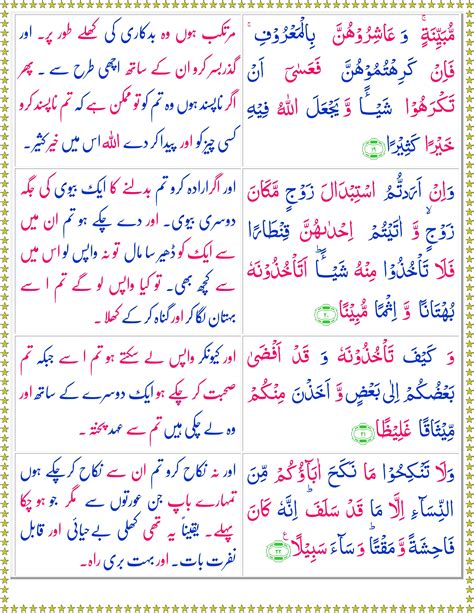 مُّبَيِّنَةٍ ۚ وَ عَاشِرُوْهُنَّ بِالْمَعْرُوْفِ ۚ
فَاِنْ كَرِهْتُمُوْهُنَّ فَعَسٰۤى اَنْ
تَكْرَهُوْا شَيْـًٔا وَّ يَجْعَلَ اللّٰهُ فِيْهِ
خَيْرًا كَثِيْرًا ۱۹
مرتکب ہوں وہ بدکاری کی کھلے طور پر۔ اور
گذربسر کرو ان کے ساتھ اچھی طرح سے ۔ پھر
اگر ناپسند ہوں وہ تم کو تو ممکن ہے کہ تم ناپسند کرو
کسی چیز کو اور پیدا کر دے اللہ اس میں خیر کثیر۔
وَاِنْ اَرَدْتُّمُ اسْتِبْدَالَ زَوْجٍ مَّكَانَ
زَوْجٍ ۙ وَّ اٰتَيْتُمْ اِحْدٰىهُنَّ قِنْطَارًا
فَلَا تَاْخُذُوْا مِنْهُ شَيْـًٔا ؕ اَتَاْخُذُوْنَهٗ
بُهْتَانًا وَّ اِثْمًا مُّبِيْنًا ۲۰
اور اگر ارادہ کرو تم بدلنے کا ایک بیوی کی جگہ
دوسری بیوی۔ اور دے چکے ہو تم ان میں
سے ایک کو ڈھیر سا مال تو نہ واپس لو اس میں
سے کچھ بھی۔ تو کیا واپس لو گے تم اسے
بہتان لگا کر اور گناہ کر کے کھلا ۔
وَ كَيْفَ تَاْخُذُوْنَهٗ وَ قَدْ اَفْضٰى
بَعْضُكُمْ اِلٰى بَعْضٍ وَّ اَخَذْنَ مِنْكُمْ
مِّيْثَاقًا غَلِيْظًا ۲۱
اور کیونکر واپس لے سکتے ہو تم اسے جبکہ تم
صحبت کر چکے ہو ایک دوسرے کے ساتھ اور
وہ لے چکی ہیں تم سے عہد پختہ ۔
وَلَا تَنْكِحُوْا مَا نَكَحَ اٰبَآؤُكُمْ مِّنَ
النِّسَآءِ اِلَّا مَا قَدْ سَلَفَ ؕ اِنَّهٗ كَانَ
فَاحِشَةً وَّ مَقْتًا ؕ وَ سَآءَ سَبِيْلًا ۲۲
اور نہ نکاح کرو تم ان سے نکاح کرچکے ہوں
تمہارے باپ جن عورتوں سے مگر جو ہو چکا
پہلے۔ یقینًا یہ تھی کھلی بےحیائی اور قابل
نفرت بات۔ اور بہت بری راہ۔